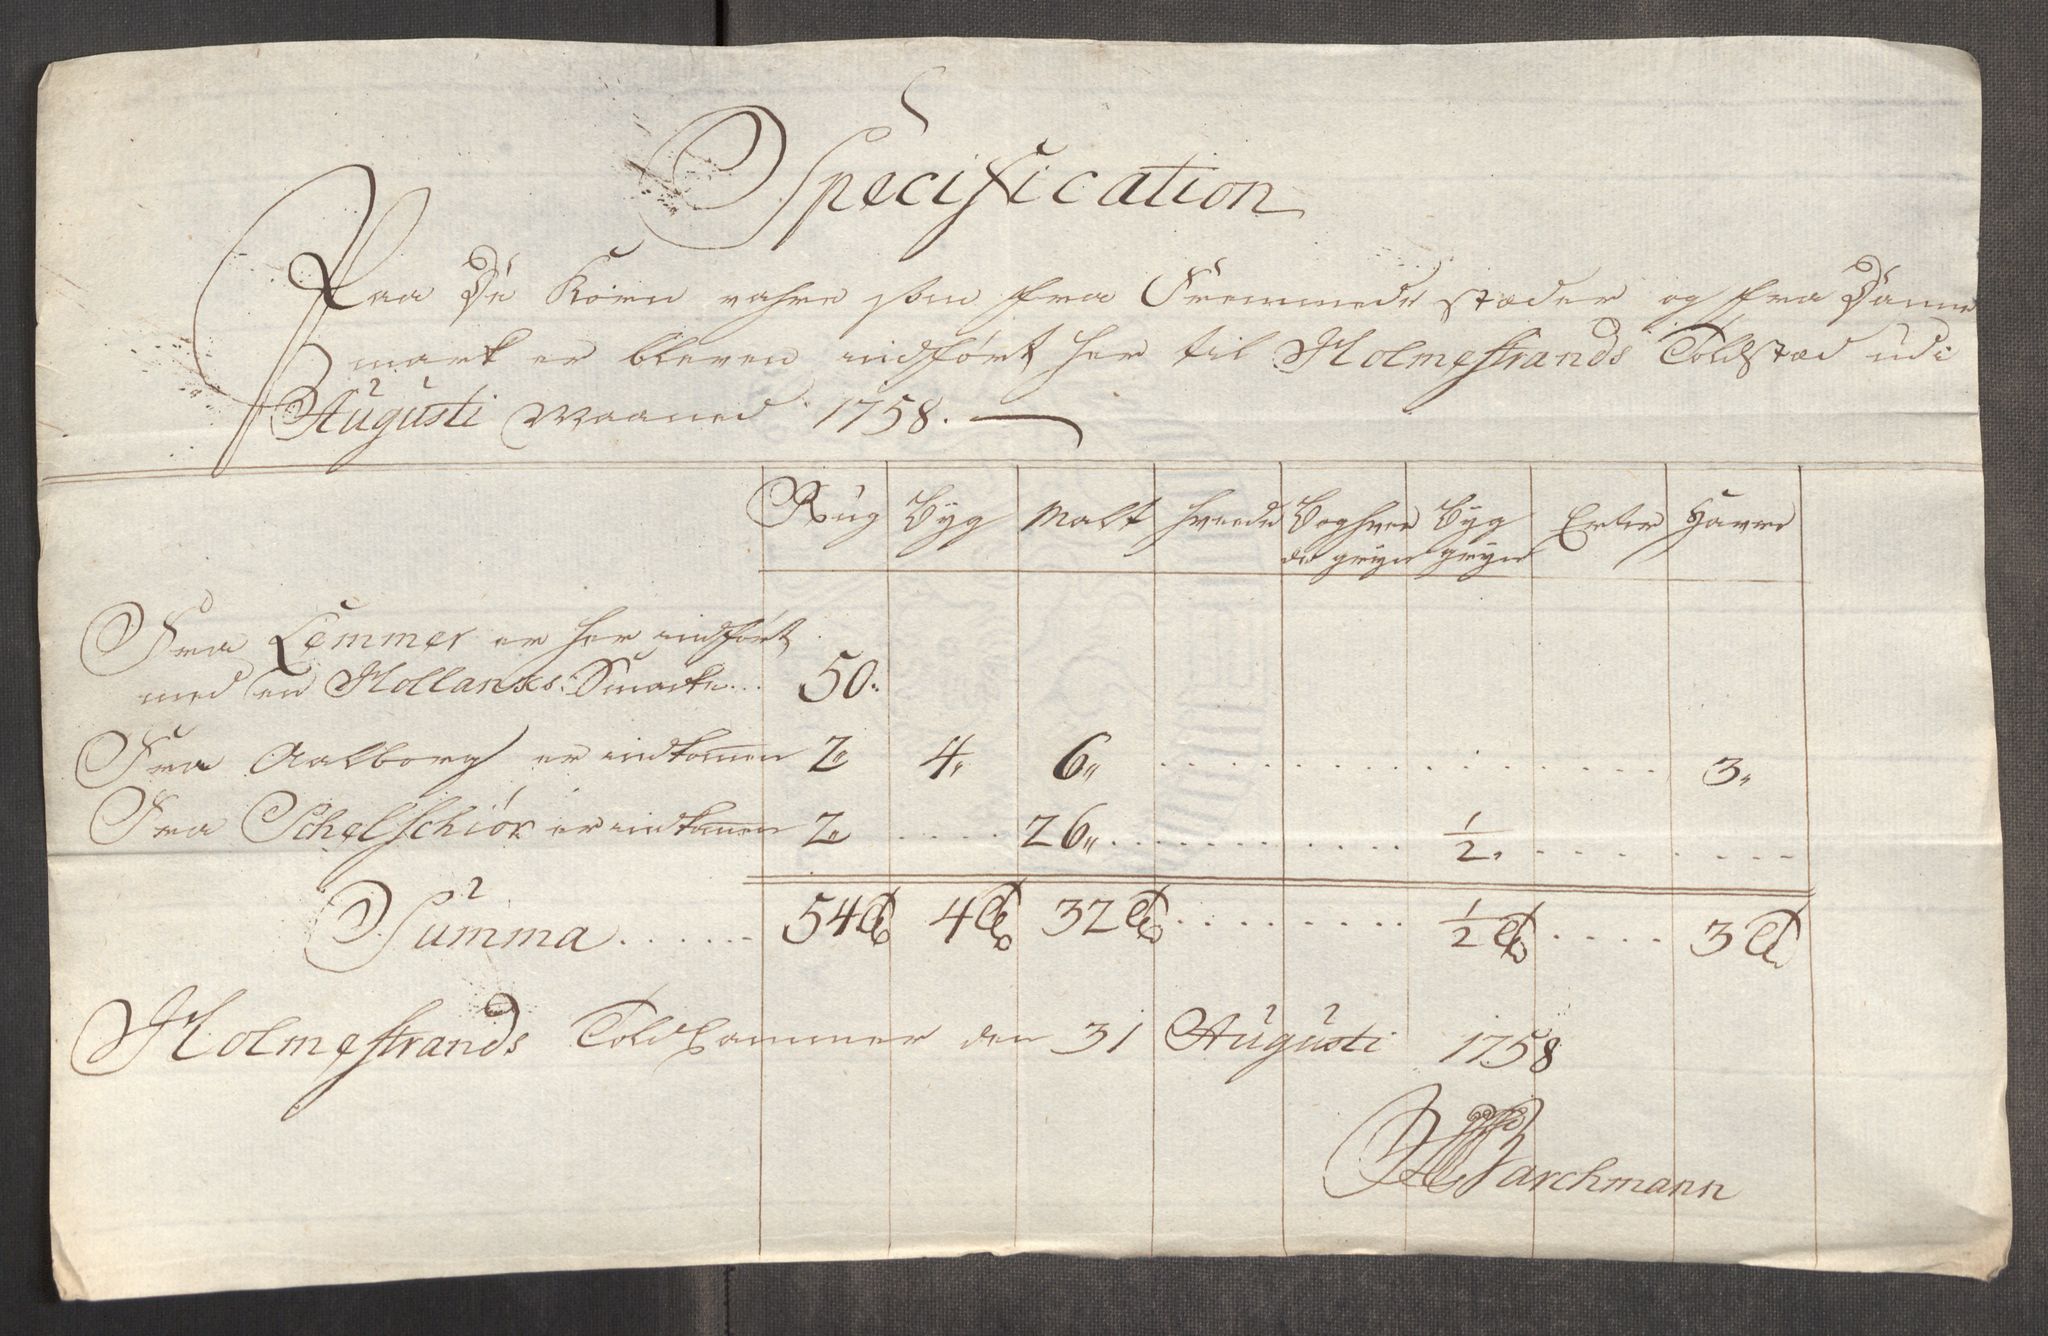 Specification
Paa De Korn vahre som fra Fremmede stæder og fra Danne
mark er bleven indført her til Holmestrands Toldstæd udi
Augusti Maaned 1758.
Rug Byg Malt hvede Boghve Byg Erter Havre
de gryn gryn
Fra Lemmer er her indført
med en Hollansk Smacke... 50"
Fra Aalborg er indkommen 2" 4" 6" 3"
Fra Schelschiør er indkommen 2" 26" 1/2"
Summa 54 4 32 1/2 3
Holmestrands Toldkammer den 31 Augusti 1758
Parchmann